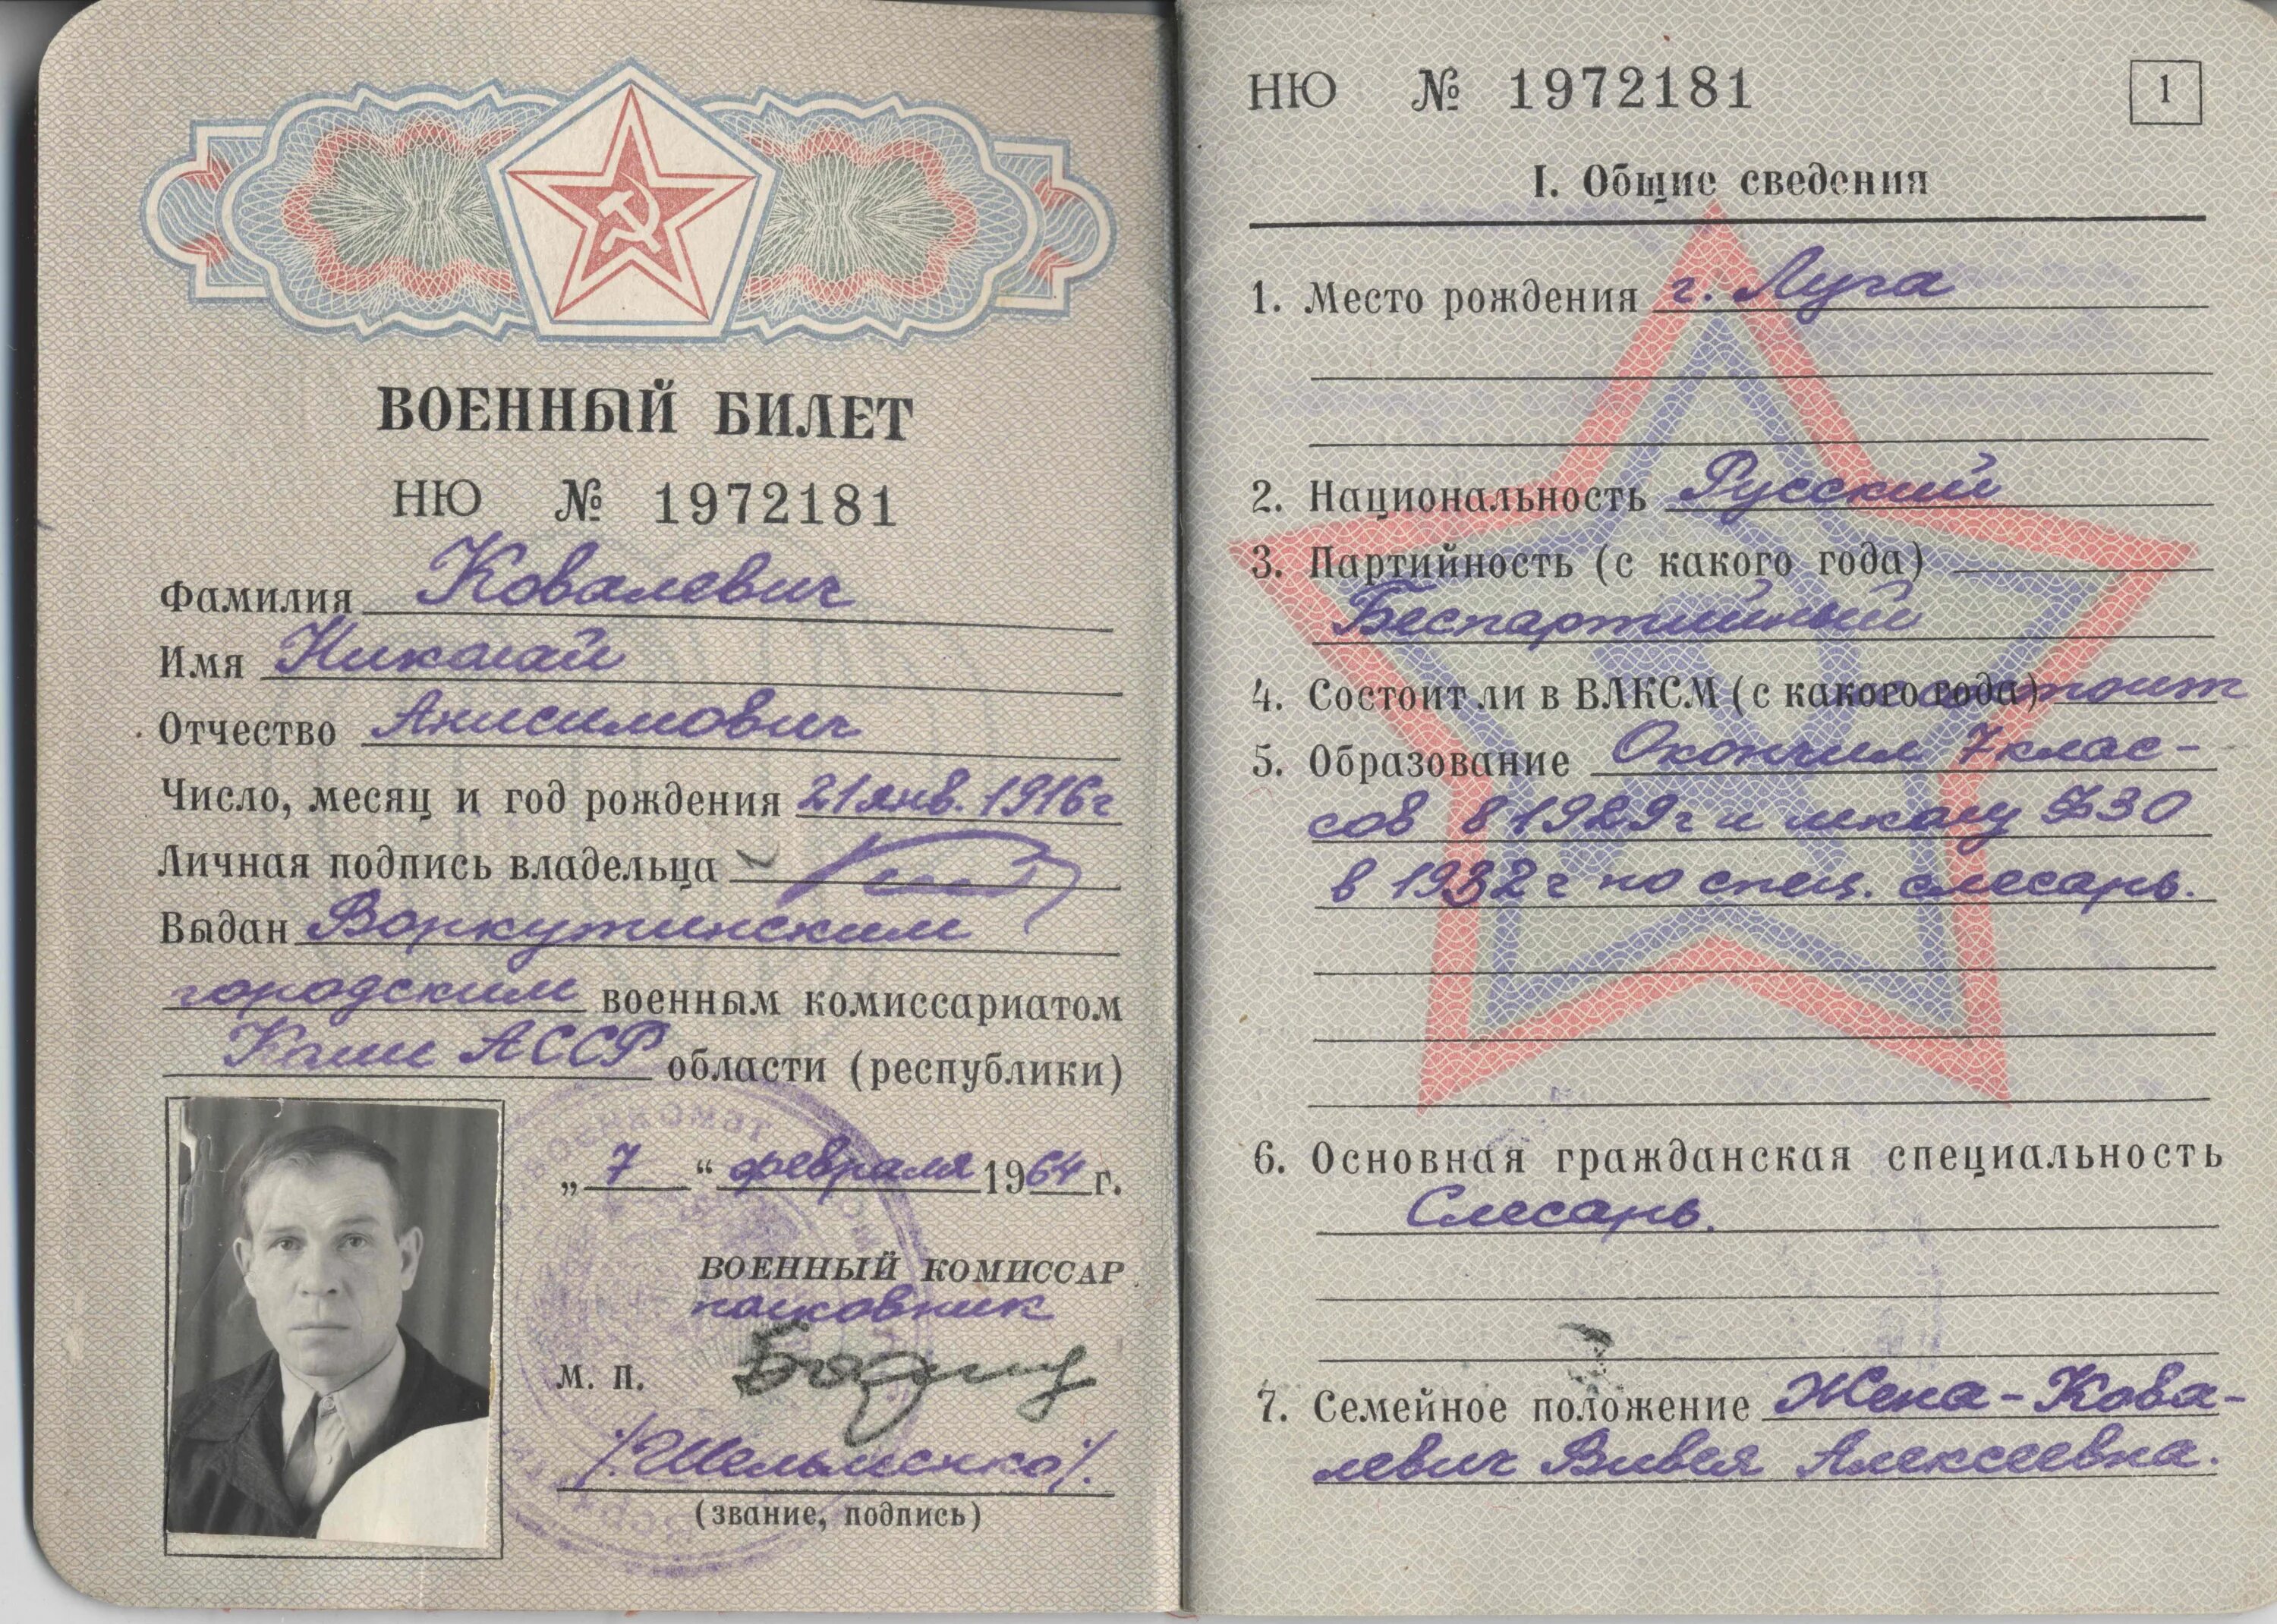 ВОЕННЫЙ БИЛЕТ
НЮ № 1972181
Фамилия Ковалевич
Имя Николай
Отчество Анисимович
Число, месяц и год рождения 21 янв. 1916 г
Личная подпись владельца
Выдан Воркутинским
городским военным комиссариатом
Коми АССР области (республики)
„ 7 “ февраля 1964 г.
ВОЕННЫЙ КОМИССАР
полковник
М. П.
/Шельменко/.
(звание, подпись)
НЮ № 1972181
1
I. Общие сведения
1. Место рождения г. Луга
2. Национальность Русский
3. Партийность (с какого года)
Беспартийный
4. Состоит ли в ВЛКСМ (с какого года) не состоит
5. Образование Окончил 7 клас-
сов в 1929 г и школу ФЗО
в 1932 г по спец. слесарь.
6. Основная гражданская специальность
Слесарь.
7. Семейное положение Жена - Кова-
левич Вивея Алексеевна.